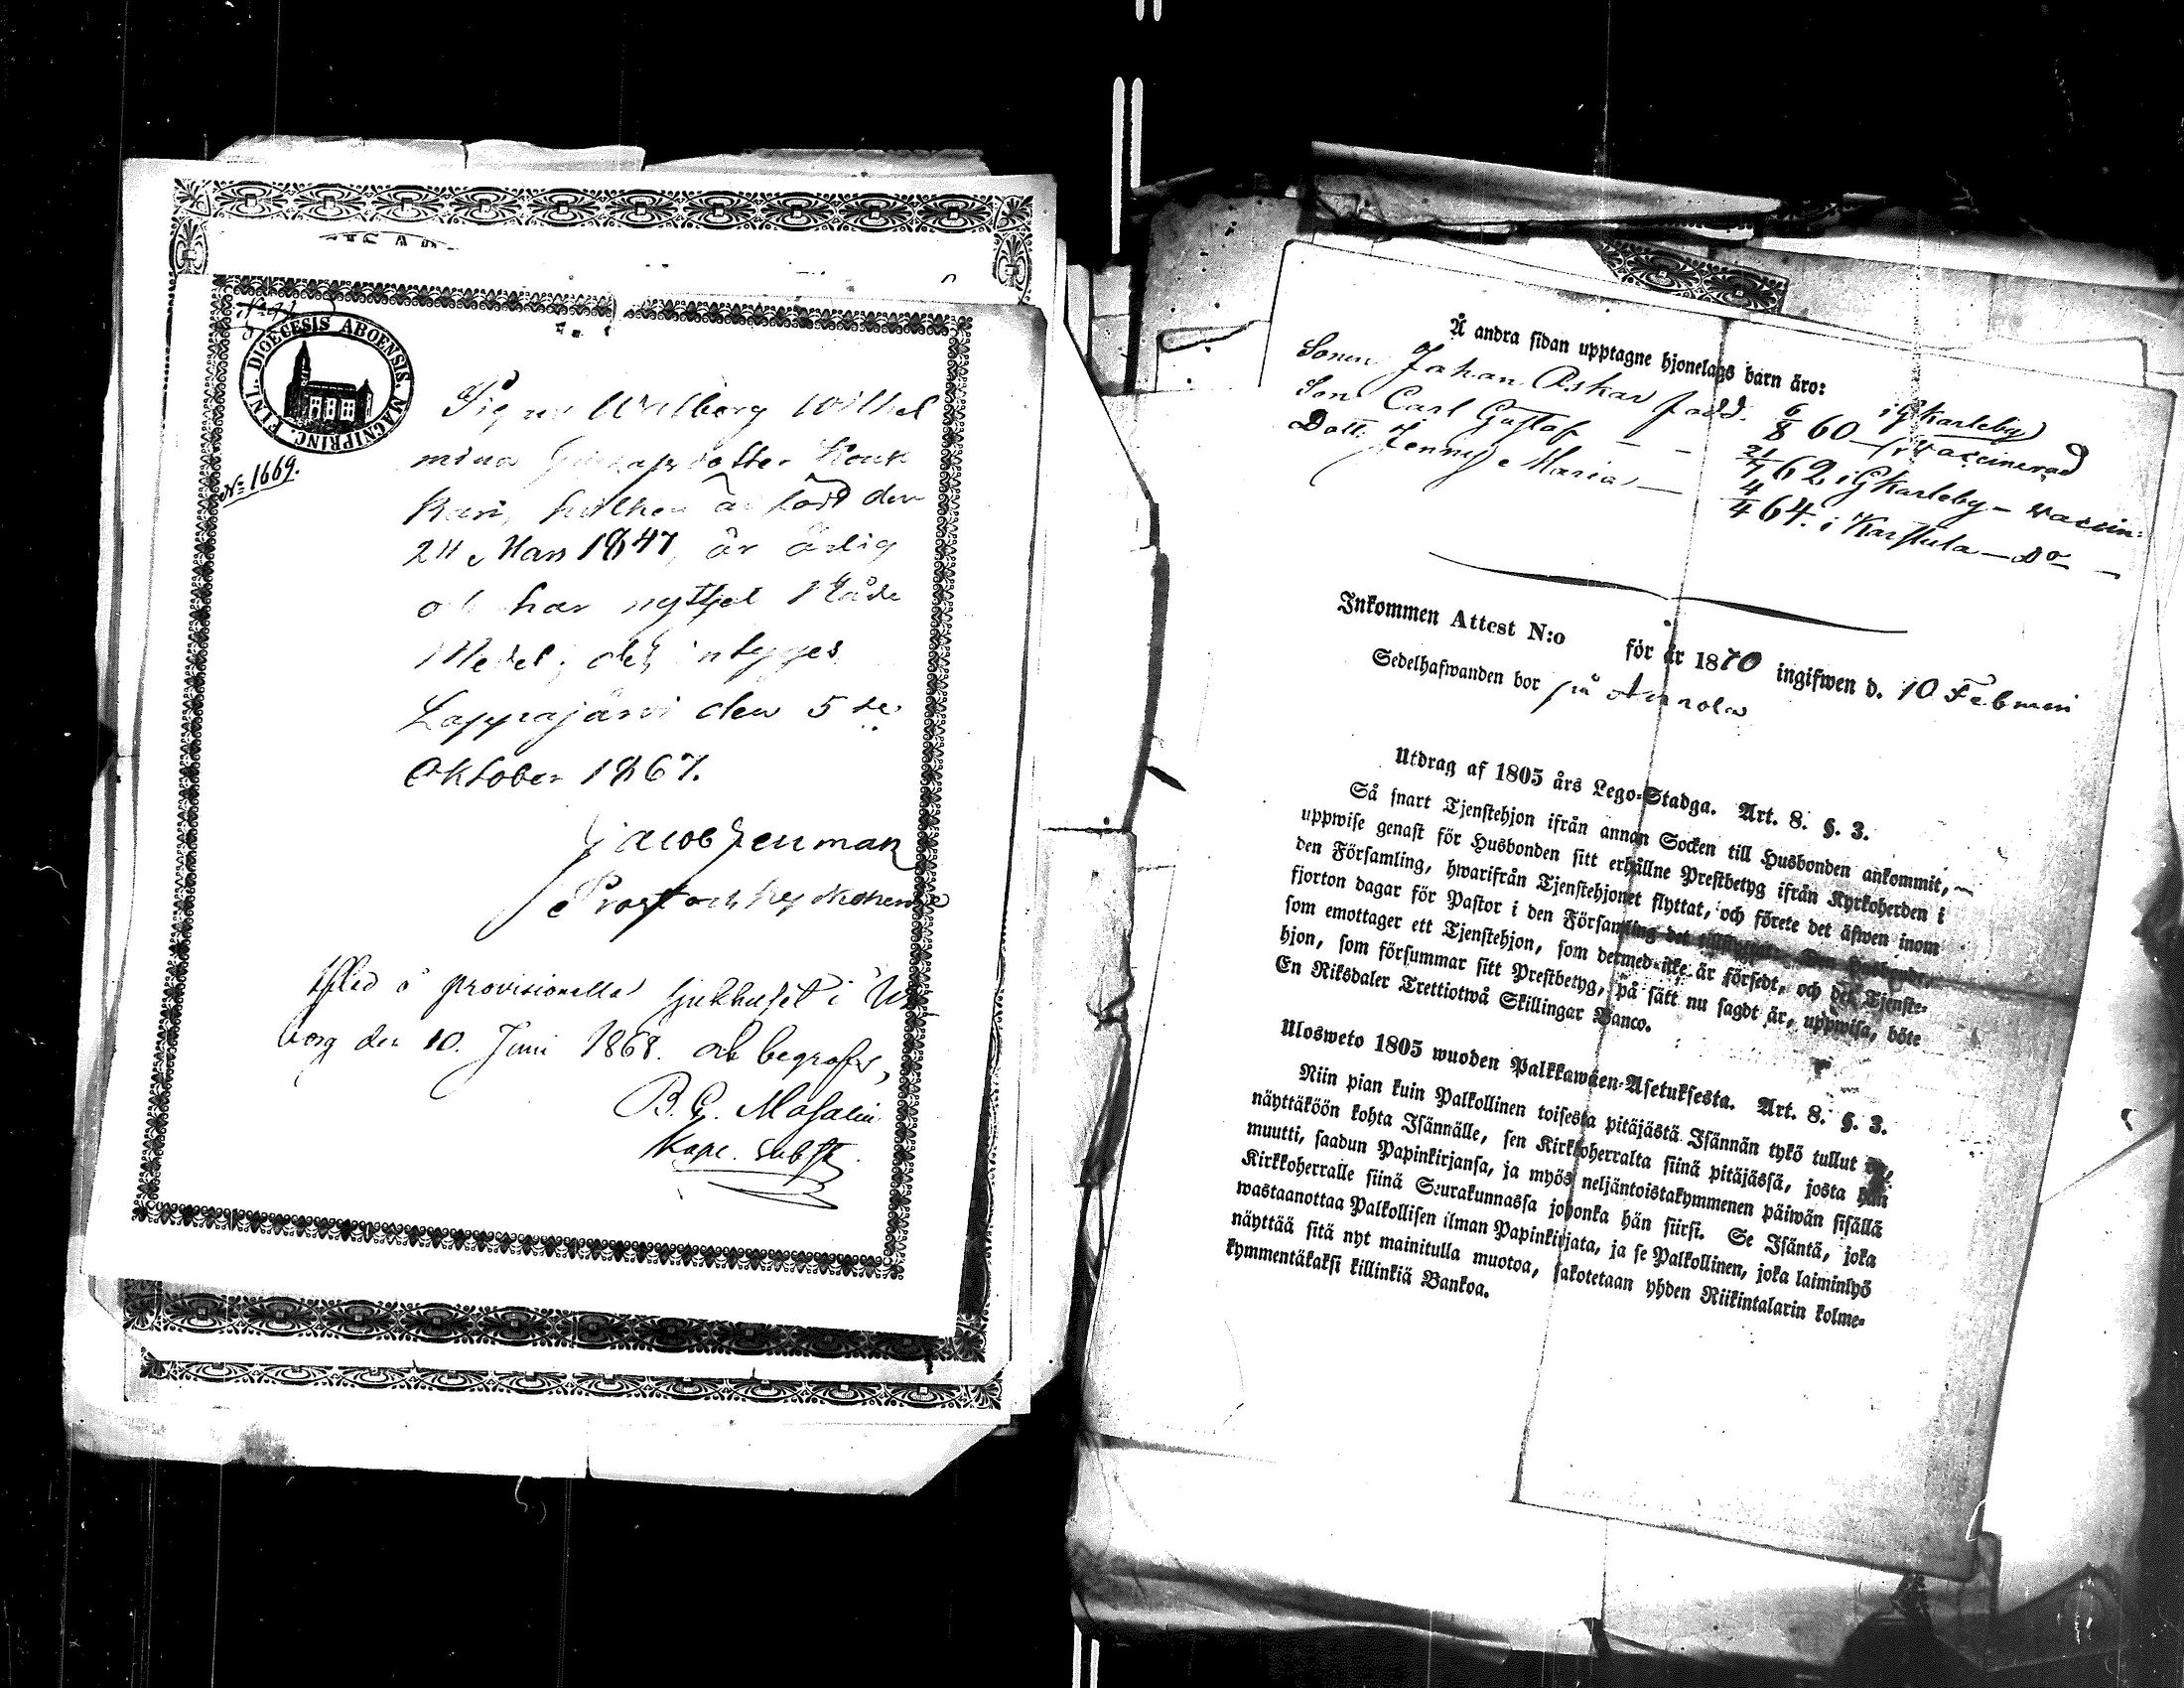 DIOECESIS ABOENSIS. MAGNIPRINC. FINL.
No 1669.
Pigan Walborg Wilhel
mina Gustafsdotter Kouk
kari, hvilken är född den
24 Mars 1847, är ärlig
och har nyttjat H. H. Nåde
Medel; det intygas
Lappajärvi den 5te
Oktober 1867.
Jacob Fellman
Prost och Kyrkoherde
Afled å provisionella sjukhuset i Wi
borg den 10. Juni 1868. och begrofs,
B. G. Masalin
Kapl. Subst.
Å andra sidan upptagne hjonelags barn äro:
Sonen Johan Oskar född. 6/8 60 i GKarleby Vaccinerad
Son Carl Gustaf — — 21/7 62 i GKarleby — vaccin:
Dott. Jenny Maria — 4/4 64. i Karstula — Do —
Inkommen Attest N:o för år 1870 ingifwen d. 10 Februari
Sedelhafwanden bor på Annola
Utdrag af 1805 års Lego-Stadga. Art. 8. §. 3.
Så snart Tjenstehjon ifrån annan Socken till Husbonden ankommit,
uppwise genast för Husbonden sitt erhållne Prestbetyg ifrån Kyrkoherden i
den Församling, hwarifrån Tjenstehjonet flyttat, och förete det äfwen inom
fjorton dagar för Pastor i den Församling det tillflyttat. Den Husbonde,
som emottager ett Tjenstehjon, som dermed icke är försedt, och det Tjenste-
hjon, som försummar sitt Prestbetyg, på sätt nu sagdt är, uppwisa, böte
En Riksdaler Trettiotwå Skillingar Banco.
Ulosweto 1805 wuoden Palkkawäen-Asetuksesta. Art. 8. §. 3.
Niin pian kuin Palkollinen toisesta pitäjästä Isännän tykö tullut on,
näyttäköön kohta Isännälle, sen Kirkkoherralta siinä pitäjässä, josta hän
muutti, saadun Papinkirjansa, ja myös neljäntoistakymmenen päiwän sisällä
Kirkkoherralle siinä Seurakunnassa johonka hän siirsi. Se Isäntä, joka
wastaanottaa Palkollisen ilman Papinkirjata, ja se Palkollinen, joka laiminlyö
näyttää sitä nyt mainitulla muotoa, sakotetaan yhden Riikintalarin kolme-
kymmentäkaksi killinkiä Bankoa.